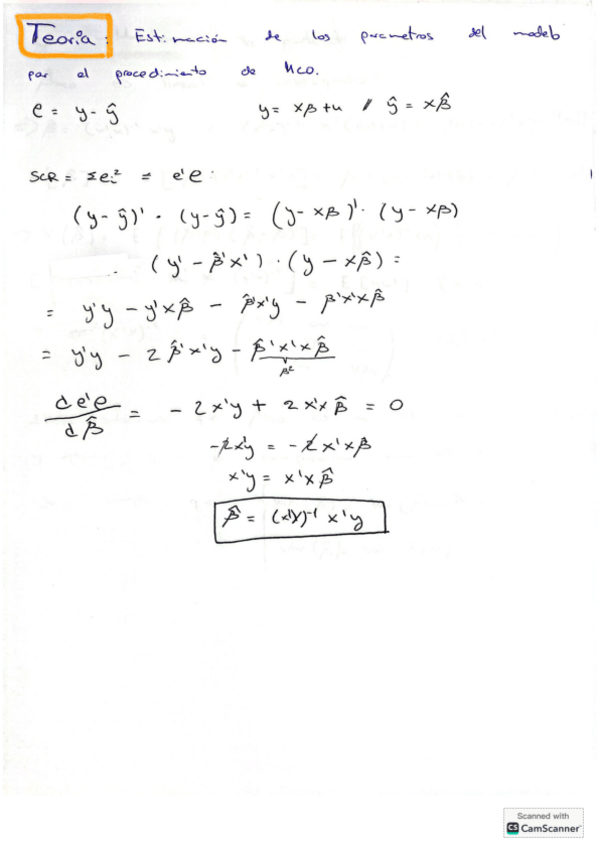 Teoría: Estimación de los parametros del modelo
por el procedimiento de MCO.
e = y - ŷ    y = xβ + u // ŷ = xβ̂
SCR = Σei² = e'e.
(y - ŷ)' · (y - ŷ) = (y - xβ)' · (y - xβ)
(y' - β̂'x') · (y - xβ̂) =
= y'y - y'xβ̂ - β̂'x'y - β'x'xβ̂
= y'y - 2β̂'x'y - β̂'x'xβ̂
β²
d e'e / d β̂ = - 2x'y + 2x'xβ̂ = 0
-2x'y = -2x'xβ
x'y = x'xβ̂
β̂ = (x'x)⁻¹ x'y
Scanned with
CS CamScanner